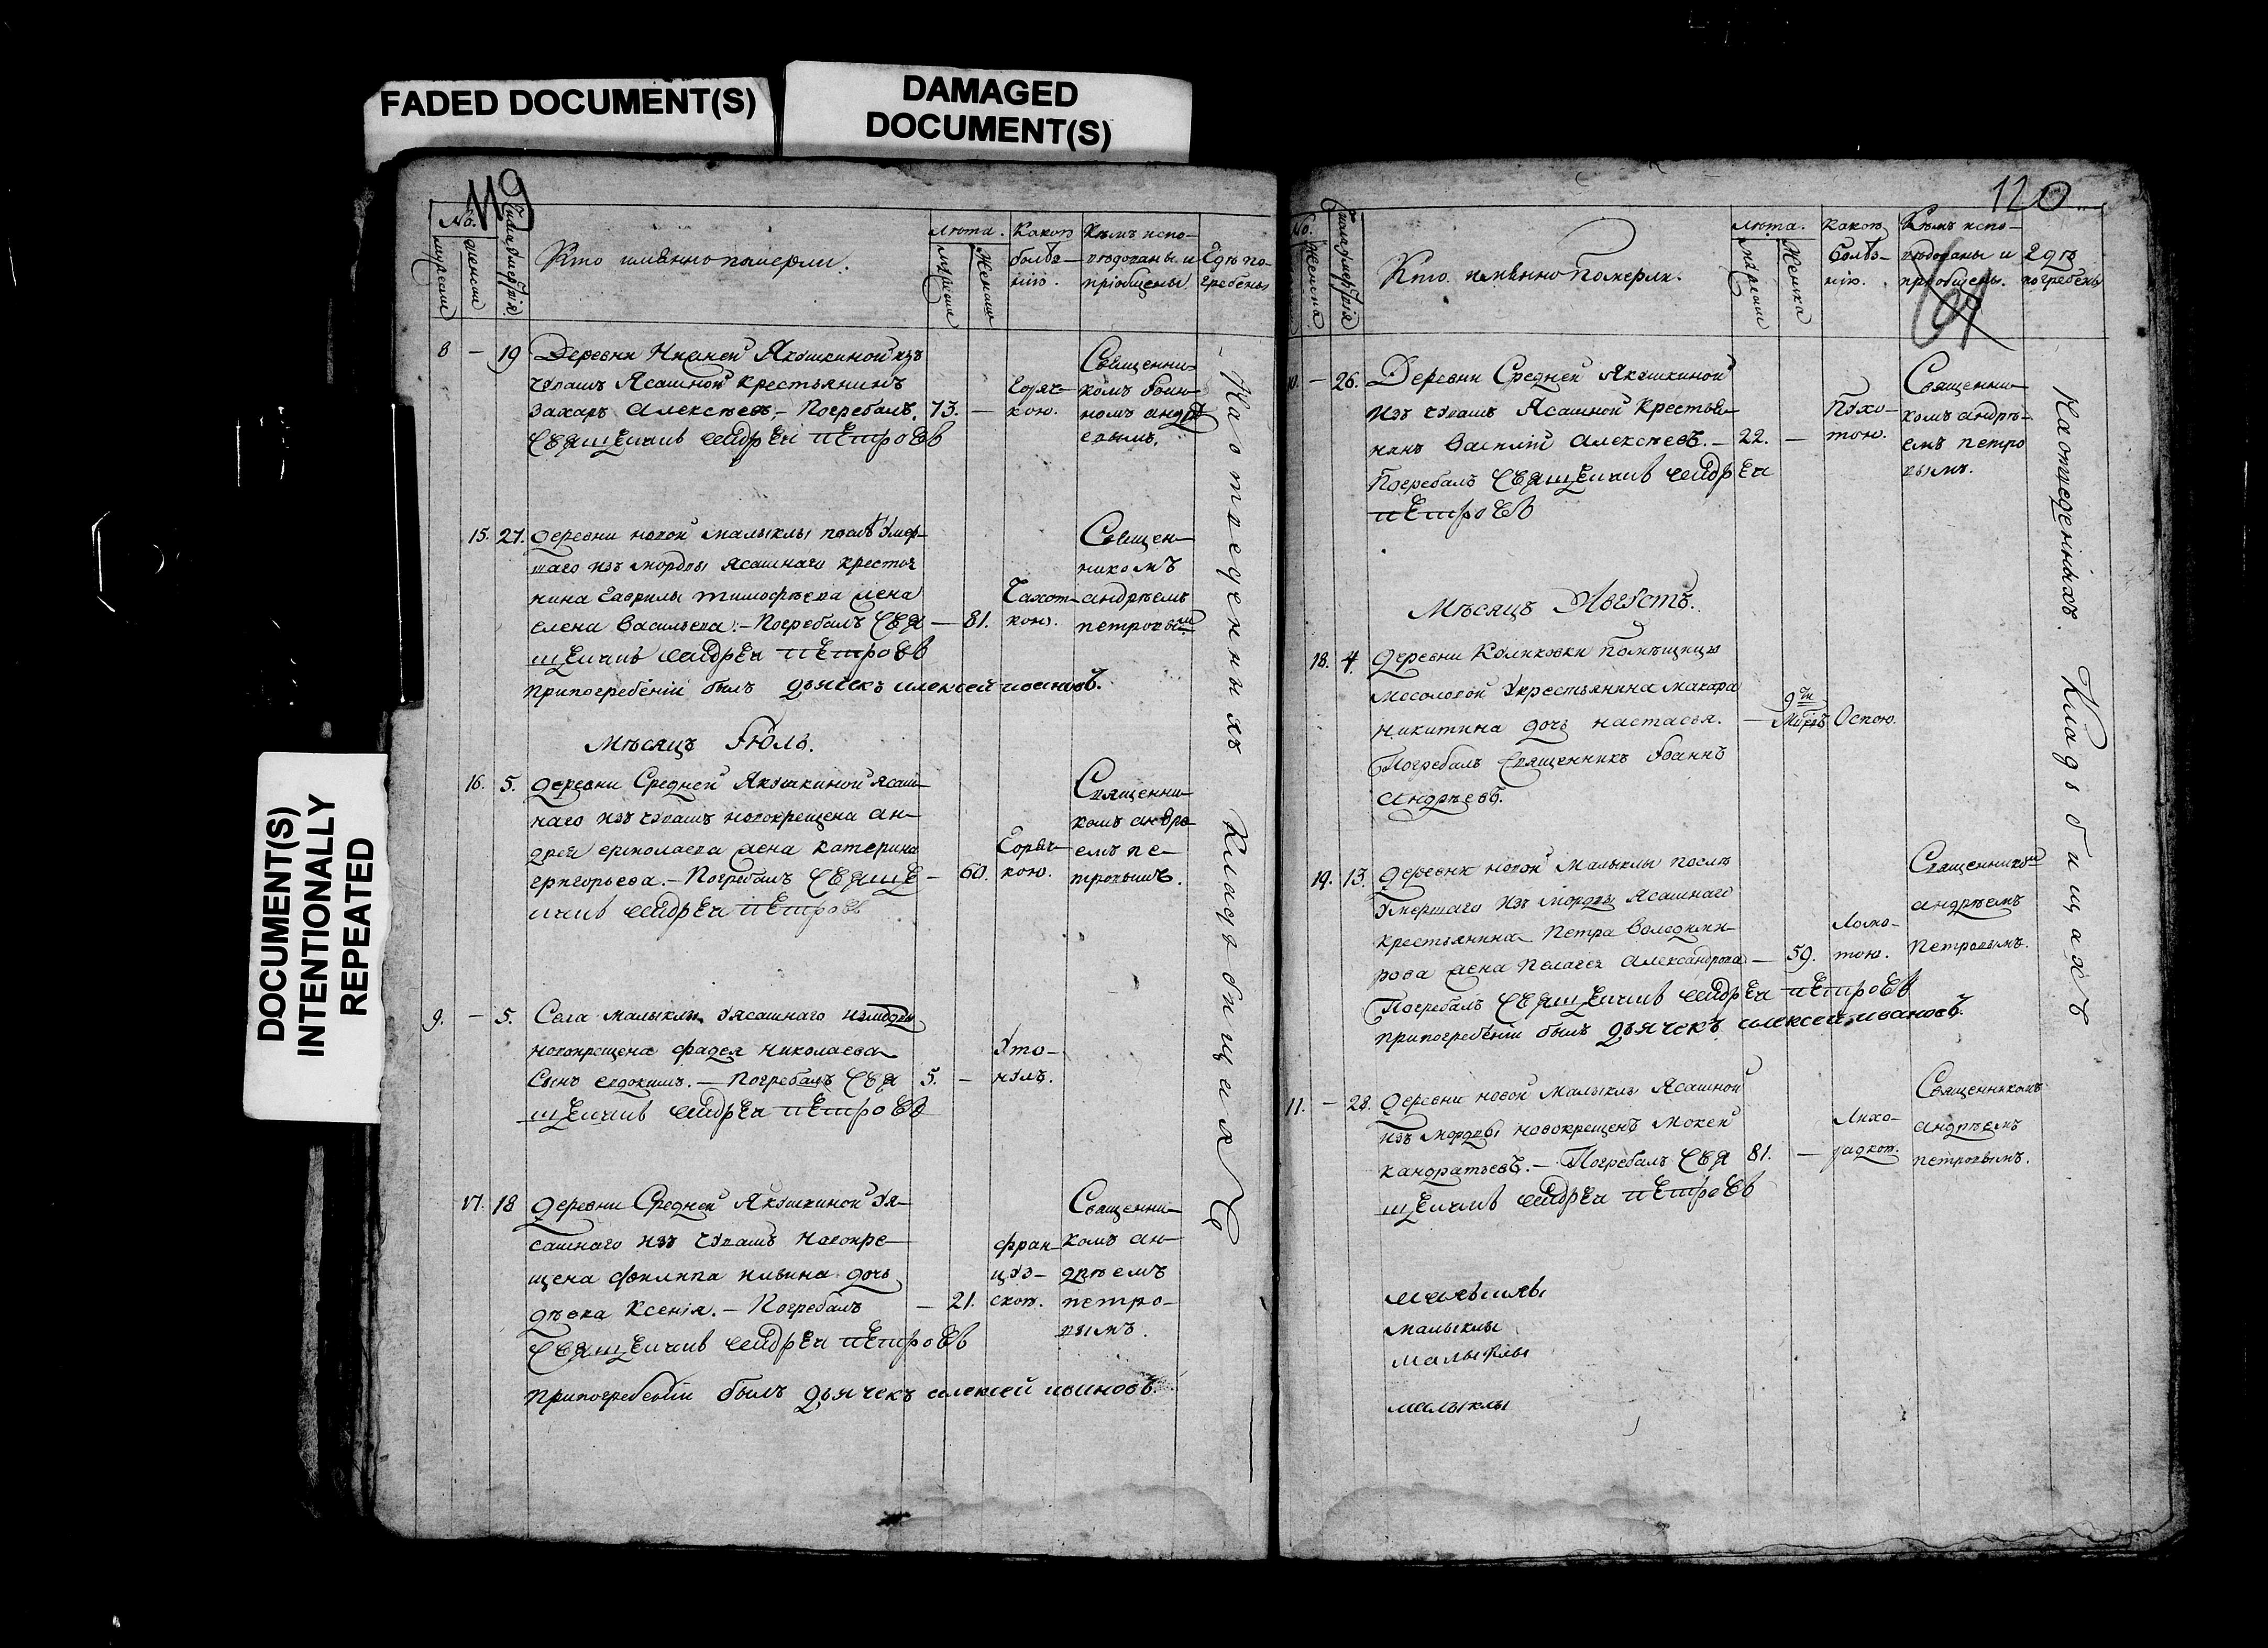 FADED DOCUMENT(S)
DAMAGED
DOCUMENT(S)
DOCUMENT(S)
INTENTIONALLY
REPEATED
119
No.
мужеска
женска
Число смерти
Кто имянно померли.
лѣта.
мужеска
женска
Какою
болѣз-
нію.
Кѣмъ испо-
вѣдованы и
пріобщены
Гдѣ по-
гребены
8 — 19 Деревни Нижней Якушкиной изъ
чувашъ Ясашной крестьянинъ
Захаръ Алексѣевъ. — Погребалъ 73. —
священникъ андрей петровъ
Горяч-
кою.
Священни-
комъ Іоан-
номъ андрѣ
евымъ.
15. 27. деревни новой малыклы послѣ умер-
шаго изъ мордвы ясашнаго крестья
нина Гаврилы тимофѣева жена
елена васильева. — Погребалъ свя — 81.
щенникъ андрей петровъ
при погребеніи былъ дьячекъ алексей ивановъ.
Чахот-
кою.
Священ-
никомъ
андрѣемъ
петровым
Мѣсяцъ Іюль.
16. 5. деревни Средней Якушкиной ясаш-
наго изъ чувашъ новокрещена ан-
дрея ермолаева жена катерина
григорьева. — Погребалъ свяще — 60.
нникъ андрей петровъ
Горяч-
кою.
Священни-
комъ андре
емъ пе-
тровымъ.
9. — 5. Села малыклы уясашнаго измордвы
новокрещена фадея николаева
сынъ евдокимъ. — Погребалъ свя 5. —
щенникъ андрей петровъ
Уто-
нулъ.
17. 18 деревни Средней Якушкиной уя-
сашнаго изъ чувашъ новокре-
щена филипа ильина дочь
дѣвка Ксенія. — Погребалъ — 21.
священникъ андрей петровъ
при погребеніи былъ дьячекъ алексей ивановъ.
фран-
цуз-
ской.
Священни-
комъ ан-
дрѣемъ
петро-
вымъ.
На отведенныхъ Кладьбищахъ
120
No.
Женска
Число смертія
Кто имянно померли.
лѣта.
мужеска
Женска
Какою
болѣз-
нію.
Кѣмъ испо-
вѣдованы и
пріобщены.
Гдѣ
погребены
— 26. Деревни Средней Якушкиной
изъ чувашъ Ясашной крестья-
нинъ василій алексѣевъ. — 22. —
Погребалъ священникъ андрей
петровъ
Священни-
комъ андрѣ-
емъ петро
вымъ.
Мѣсяцъ Августъ.
18. 4. деревни Куликовки помѣщицы
Мосоловой укрестьянина макара
никитина дочь настасья. —
Погребалъ священникъ Іоаннъ
андрѣевъ.
Оспою.
19. 13. деревни новой малыклы послѣ
умершаго изъ мордвы ясашнаго
крестьянина Петра володими-
рова жена пелагея александрова — 59.
Погребалъ священникъ андрей петровъ
при погребеніи былъ дьячекъ алексей ивановъ.
Ломо-
тою.
Священником
андрѣемъ
петровымъ.
11. — 28. деревни новой малыклы ясашной
изъ мордвы новокрещенъ мокей
кандратьевъ. — Погребалъ свя 81. —
щенникъ андрей петровъ
Лихо-
радкой.
Священникомъ
андрѣемъ
петровымъ.
На отведенныхъ Кладьбищахъ
малыклы
малыклы
малыклы
малыклы